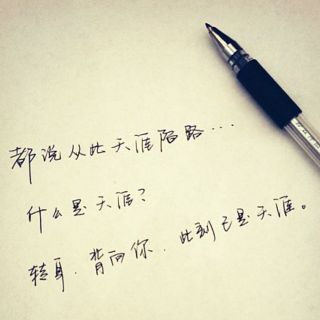 都说从此天涯陌路…
什么是天涯？
转身，背向你，此刻已是天涯。